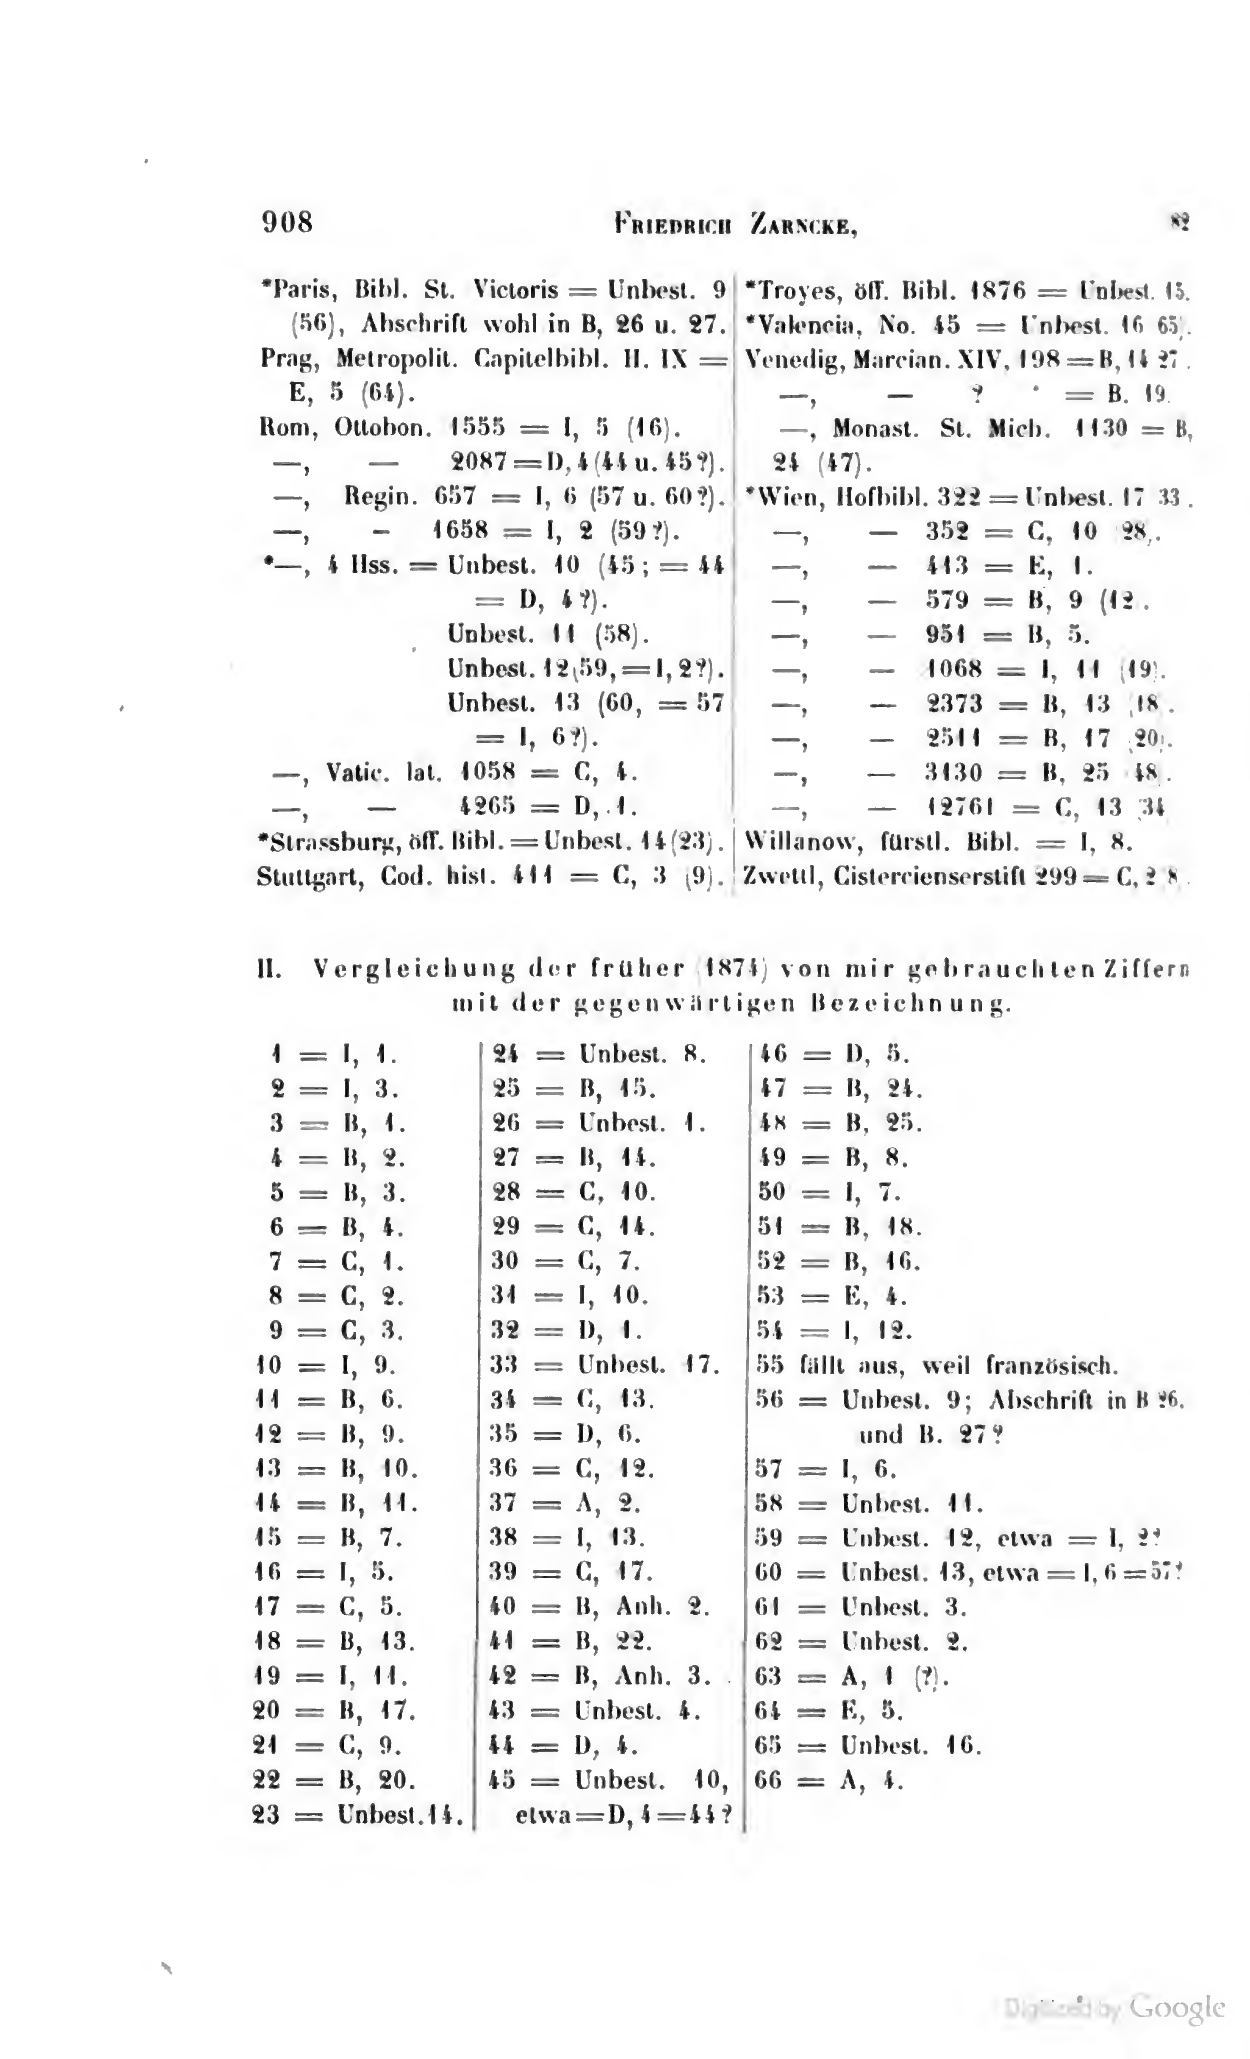 908 Friedrich Zarncke, 82
*Paris, Bibl. St. Victoris = Unbest. 9
(56), Abschrift wohl in B, 26 u. 27.
Prag, Metropolit. Capitelbibl. H. IX =
E, 5 (64).
Rom, Ottobon. 1555 = I, 5 (16).
—, — 2087 = D, 4 (44 u. 45?).
—, Regin. 657 = I, 6 (57 u. 60?).
—, – 1658 = I, 2 (59?).
*—, 4 Hss. = Unbest. 10 (45; = 44
= D, 4?).
Unbest. 11 (58).
Unbest. 12 (59, = I, 2?).
Unbest. 13 (60, = 57
= I, 6?).
—, Vatic. lat. 1058 = C, 4.
—, — 4265 = D, 1.
*Strassburg, öff. Bibl. = Unbest. 14 (23).
Stuttgart, Cod. hist. 411 = C, 3 (9).
*Troyes, öff. Bibl. 1876 = Unbest. 15.
*Valencia, No. 45 = Unbest. 16 65).
Venedig, Marcian. XIV, 198 = B, 14 27.
—, — ? = B. 19.
—, Monast. St. Mich. 1130 = B,
24 (47).
*Wien, Hofbibl. 322 = Unbest. 17 33.
—, — 352 = C, 10 28).
—, — 413 = E, 1.
—, — 579 = B, 9 (12.
—, — 951 = B, 5.
—, — 1068 = I, 11 (19).
—, — 2373 = B, 13 (18.
—, — 2511 = B, 17 (20).
—, — 3130 = B, 25 48.
—, — 12761 = C, 13 34
Willanow, fürstl. Bibl. = I, 8.
Zwettl, Cistercienserstift 299 = C, 2 8.
II. Vergleichung der früher (1874) von mir gebrauchten Ziffern
mit der gegenwärtigen Bezeichnung.
1 = I, 1.
2 = I, 3.
3 = B, 1.
4 = B, 2.
5 = B, 3.
6 = B, 4.
7 = C, 1.
8 = C, 2.
9 = C, 3.
10 = I, 9.
11 = B, 6.
12 = B, 9.
13 = B, 10.
14 = B, 11.
15 = B, 7.
16 = I, 5.
17 = C, 5.
18 = B, 13.
19 = I, 11.
20 = B, 17.
21 = C, 9.
22 = B, 20.
23 = Unbest. 14.
24 = Unbest. 8.
25 = B, 15.
26 = Unbest. 1.
27 = B, 14.
28 = C, 10.
29 = C, 14.
30 = C, 7.
31 = I, 10.
32 = D, 1.
33 = Unbest. 17.
34 = C, 13.
35 = D, 6.
36 = C, 12.
37 = A, 2.
38 = I, 13.
39 = C, 17.
40 = B, Anh. 2.
41 = B, 22.
42 = B, Anh. 3.
43 = Unbest. 4.
44 = D, 4.
45 = Unbest. 10,
etwa = D, 4 = 44?
46 = D, 5.
47 = B, 24.
48 = B, 25.
49 = B, 8.
50 = I, 7.
51 = B, 18.
52 = B, 16.
53 = E, 4.
54 = I, 12.
55 fällt aus, weil französisch.
56 = Unbest. 9; Abschrift in B 26.
und B. 27?
57 = I, 6.
58 = Unbest. 11.
59 = Unbest. 12, etwa = I, 2?
60 = Unbest. 13, etwa = I, 6 = 57?
61 = Unbest. 3.
62 = Unbest. 2.
63 = A, 1 (?).
64 = E, 5.
65 = Unbest. 16.
66 = A, 4.
Digitized by Google